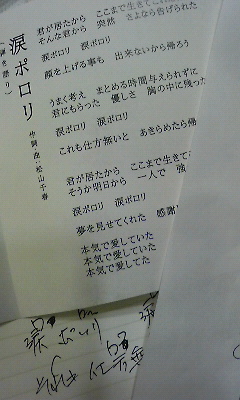 涙ポロリ
(弾き語り)
作詞/曲・松山千春
君が居たから ここまで生きてこれ
そんな君から 突然 さよなら告げられた
涙ポロリ 涙ポロリ
顔を上げる事も 出来ないから帰ろう
うまく考え まとめる時間与えられずに
君にもらった 優しさ 胸の中に残った
涙ポロリ 涙ポロリ
これも仕方無いと あきらめたら帰
君が居たから ここまで生きて
そうか明日から 一人で 強
涙ポロリ 涙ポロリ
夢を見せてくれた 感謝
本気で愛していた
本気で愛していた
本気で愛していた
涙